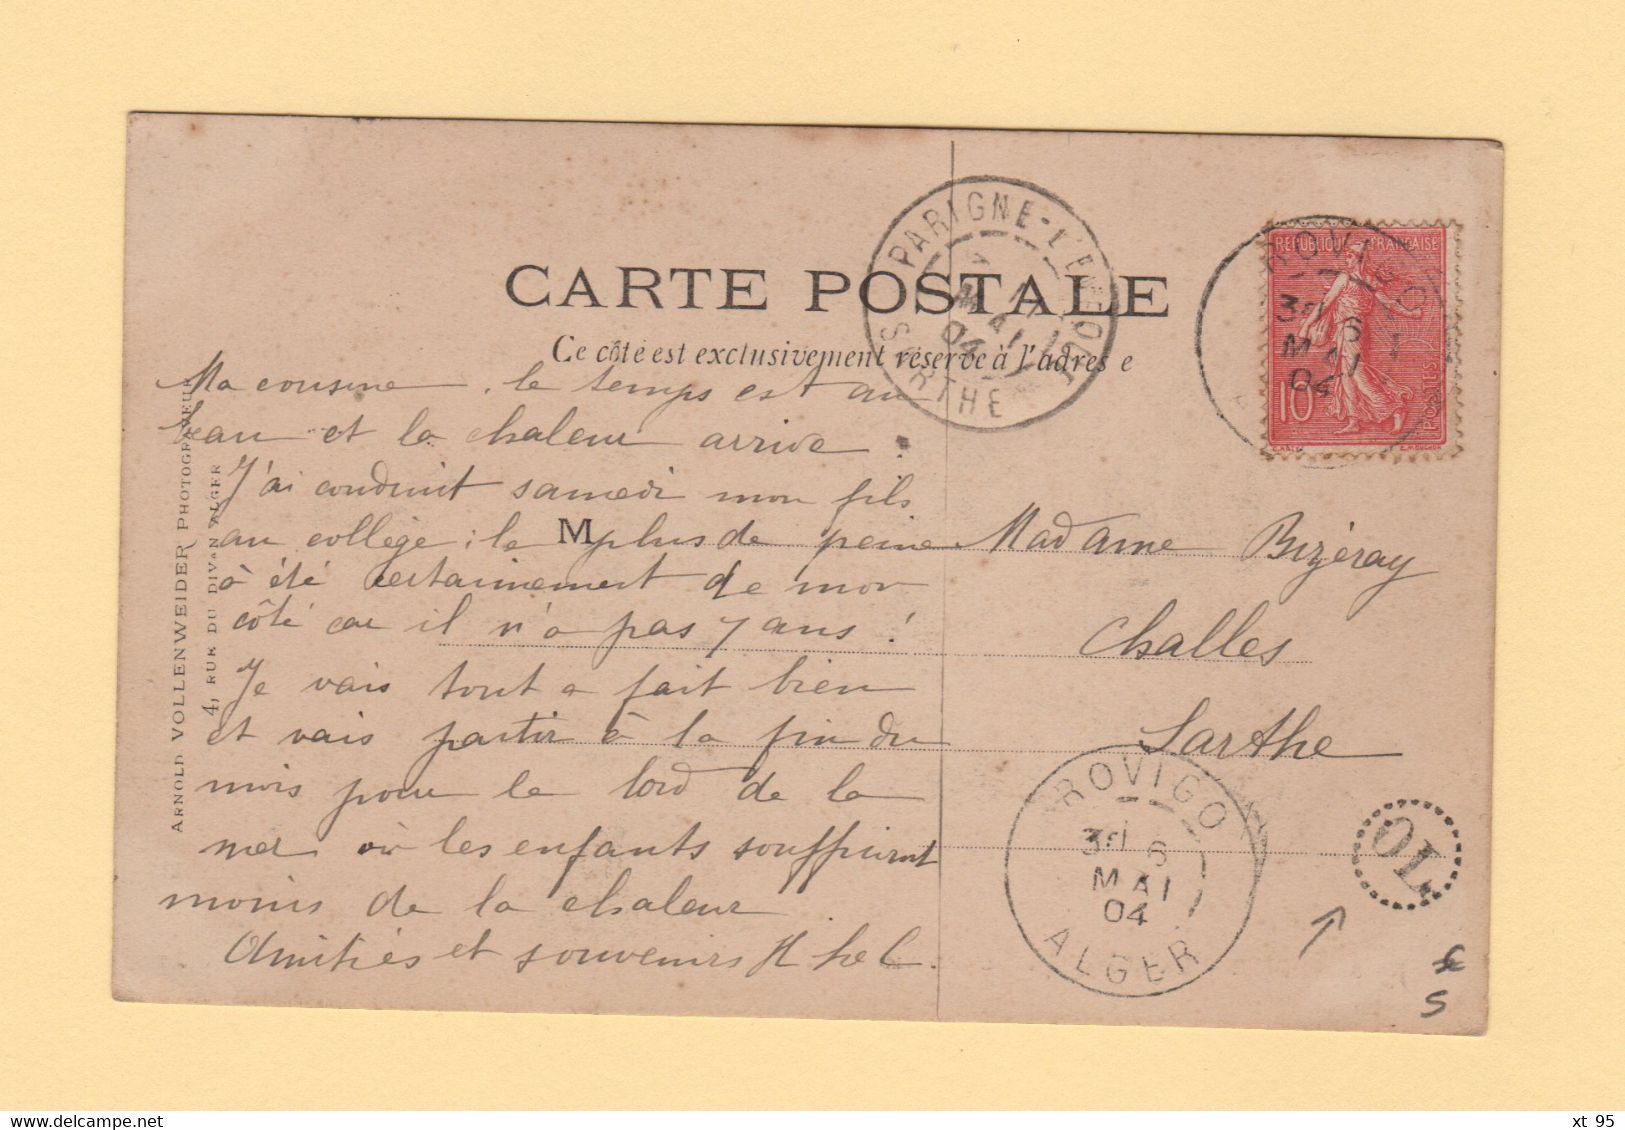 CARTE POSTALE
Ce côté est exclusivement réservé à l'adresse
PARIGNE-L'EVEQUE
11
MAI
04
SARTHE
REPUBLIQUE FRANÇAISE
10
POSTES
ROVIGO
3E 6
MAI
04
Ma cousine, le temps est au
beau et la chaleur arrive.
J'ai conduit samedi mon fils
au collège; le plus de peine
a été certainement de mon
côté car il n'a pas 7 ans!
Je vais tout a fait bien
et vais partir à la fin du
mois pour le bord de la
mer où les enfants souffriront
moins de la chaleur
Amitiés et souvenirs
M
Madame Bizéray
Challes
Sarthe
ROVIGO
3E 6
MAI
04
ALGER
OL
S
ARNOLD VOLLENWEIDER PHOTOGRAVEUR
4, RUE DU DIVAN ALGER
xt 95